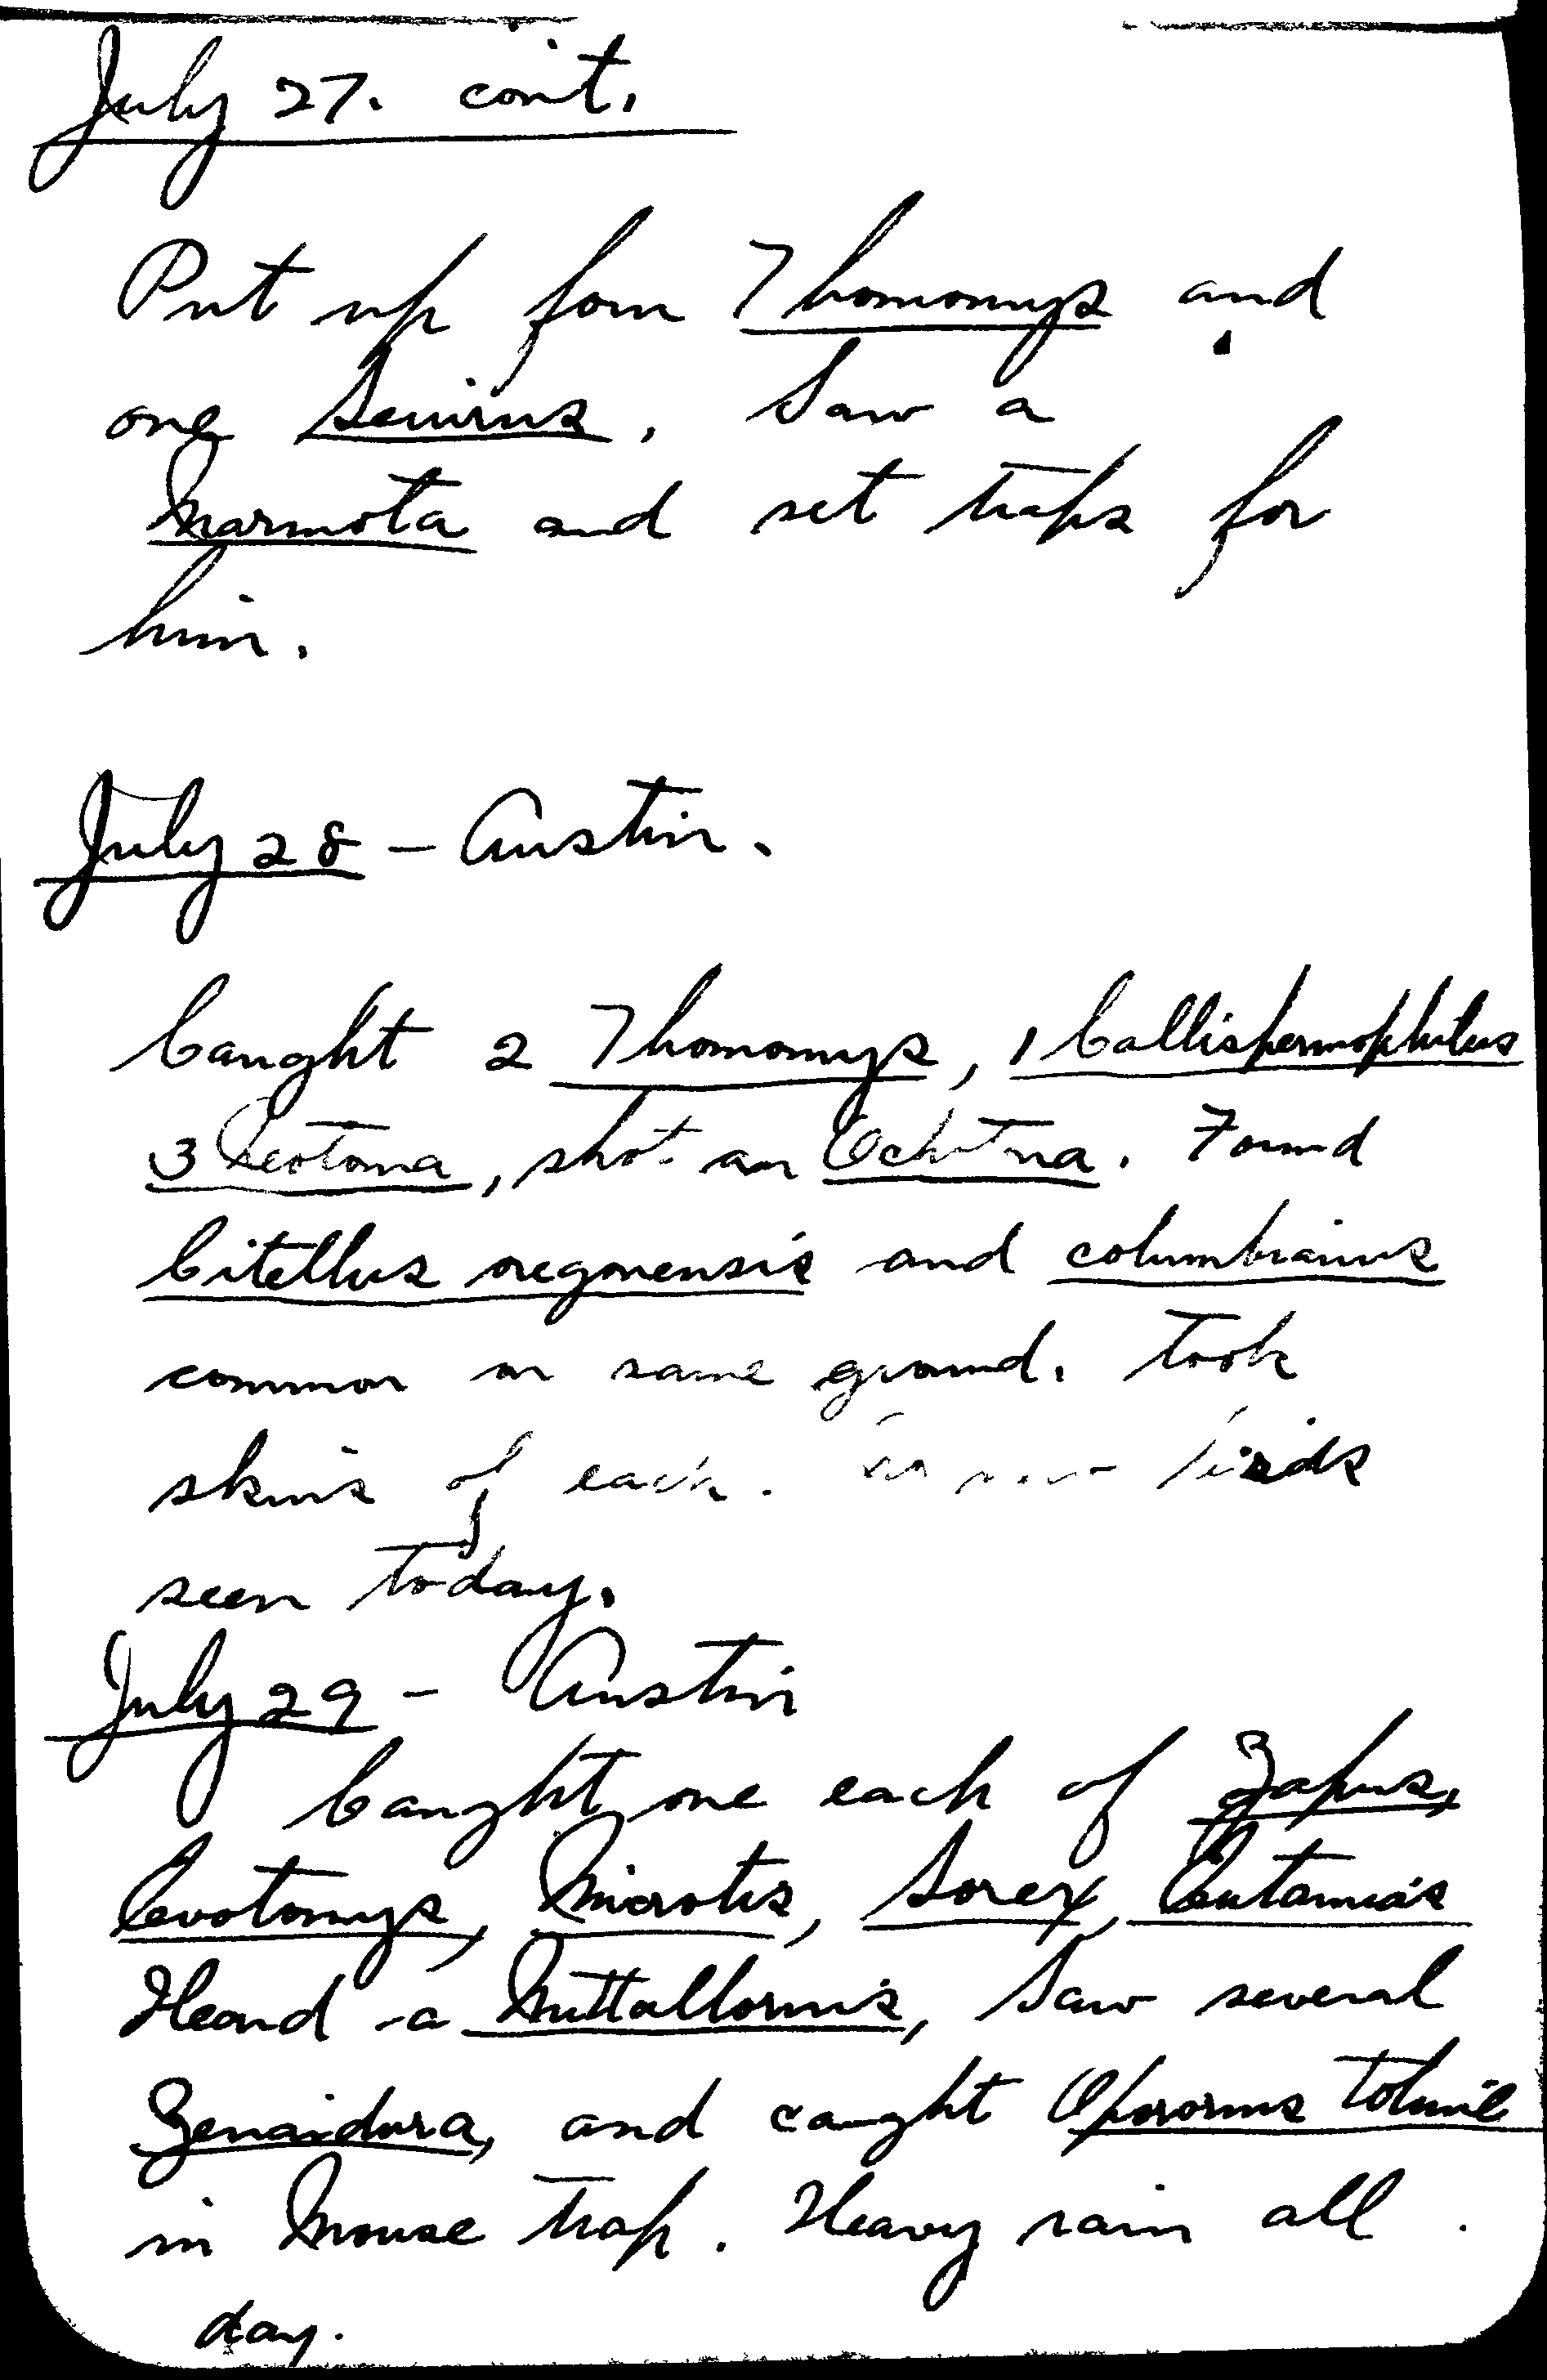 July 27. con't.
Put up four Thomomys and
one Sciurus. Saw a
Marmota and set traps for
him.
July 28 – Austin.
Caught 2 Thomomys, 1 Callispermophilus
3 Neotoma, shot an Ochotona. Found
Citellus oregonensis and columbianus
common on same ground. Took
skins of each. birds
seen today.
July 29 – Austin
Caught one each of Zapus,
Evotomys, Microtis, Sorex, Eutamias
Heard a Nuttallornis, Saw several
Zenaidura, and caught Oporornis tolmie
in Mouse trap. Heavy rain all
day.